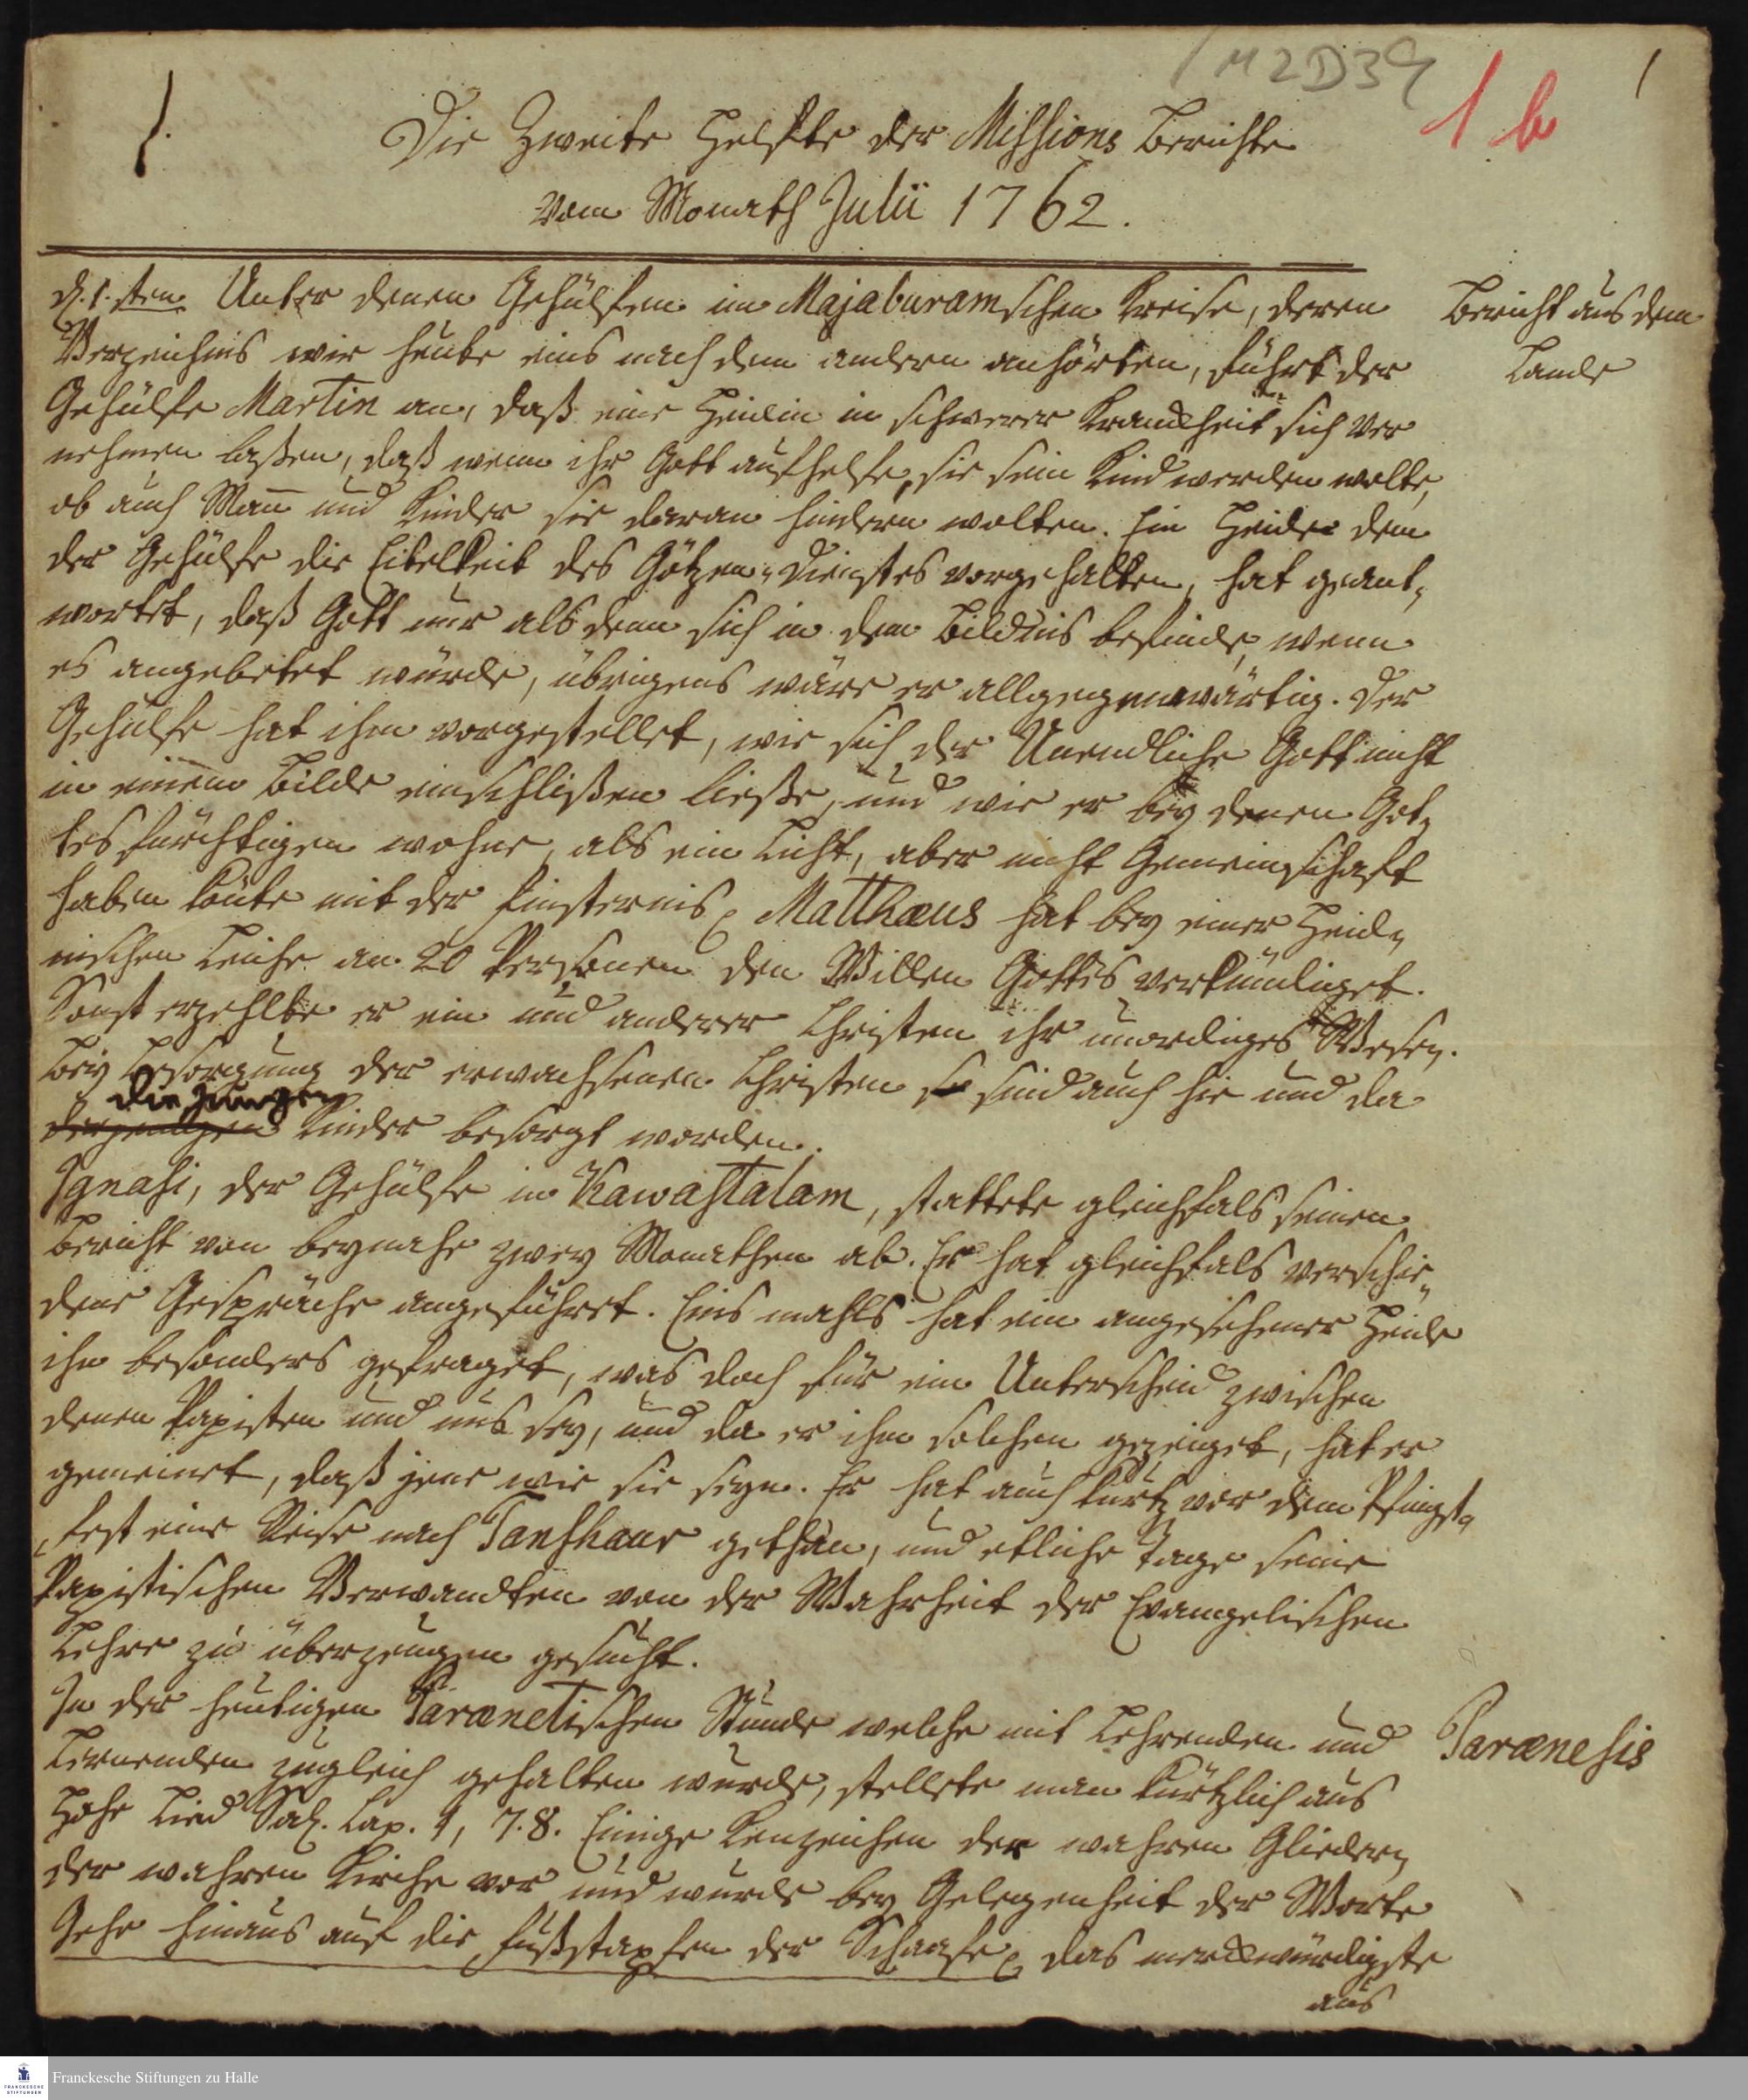 M 2 D 39
1 b
1
1.
Die Zweite Helfte der Missions Berichte
vom Monath Julii 1762.
d. 1. sten Unter denen Gehülfen im Majaburamschen Kreise, deren
Bericht aus dem
Lande
Verzeichnis wir heute eins nach dem andern anhörten, führt der
Gehülfe Martin an, daß eine Heidin in schwerer Kranckheit sich ver
nehmen laßen, daß wenn ihr Gott aufhelfe, sie sein Kind werden wolte,
ob auch Man̄ und Kinder sie daran hindern wolten. Ein Heide dem
der Gehülfe die Eitelkeit des Götzen-Dienstes vorgehalten, hat geant-
wortet, daß Gott nur alsdenn sich in dem Bildnis befinde, wenn
es angebetet würde, übrigens wäre er allgegenwärtig. Der
Gehülfe hat ihm vorgestellet, wie sich der Unendliche Gott nicht
in einem Bilde einschlißen ließe, und wie er bey denen Got-
tesfürchtigen wohne, als ein Licht, aber nicht Gemeinschaft
haben könte mit der Finsternis Matthæus hat bey einer Heid-
nischen Leiche an 20 Personen den Willen Gottes verkündiget.
Sonst erzehlte er ein und anderer Christen ihr unordiges Wesen.
Bey Besorgung der erwachsenen Christen so sind auch hie und da
die jungen
derjenigen Kinder besorgt worden.
Ignasi, der Gehülfe in Kawastalam, stattete gleichfals seinen
Bericht von beynahe zwey Monathen ab. Er hat gleichfals verschie-
dene Gespräche angeführet. Eins mahls hat ein angesehener Heide
ihn besonders gefraget, was doch für ein Unterscheid zwischen
denen Papisten und uns sey, und da er ihm solchen gezeiget, hat er
gemeinet, daß jene wie sie seyn. Er hat auch kurtz vor dem Pfingst-
fest eine Reise nach Tanshaur gethan, und etliche Tage seine
Papistischen Verwandten von der Wahrheit der Evangelischen
Lehre zu überzeugen gesucht.
In der heutigen Parænetischen Stunde welche mit Lehrenden und
Parænesis
Lernenden zugleich gehalten wurde, stellete man kürtzlich aus
Hohe Lied Sal. Cap. 1, 7. 8. Einige Kenzeichen der wahren Glieder,
der wahren Kirche vor und wurde bey Gelegenheit der Worte
Gehe hinaus auf die Fußstapfen der Schaafe das merckwürdigste
aus
Franckesche Stiftungen zu Halle
FRANCKESCHE
STIFTUNGEN